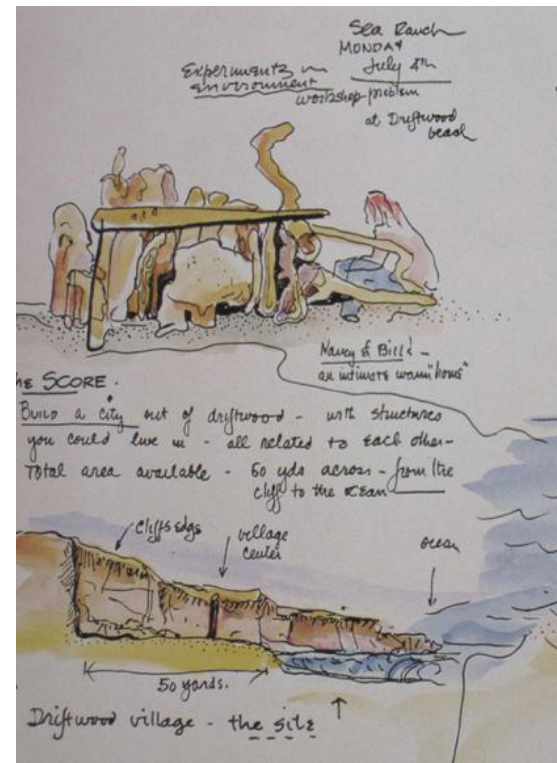 Sea Ranch
MONDAY
July 4th
Experiments in
environment
workshop problem
at Driftwood
beach
Nancy & Bill's -
an intimate warm "home"
HE SCORE.
Build a city out of driftwood - with structures
you could live in - all related to each other -
Total area available - 50 yds across - from the
cliff to the ocean
cliffs edge
village
center
ocean
50 yards.
Driftwood village - the site